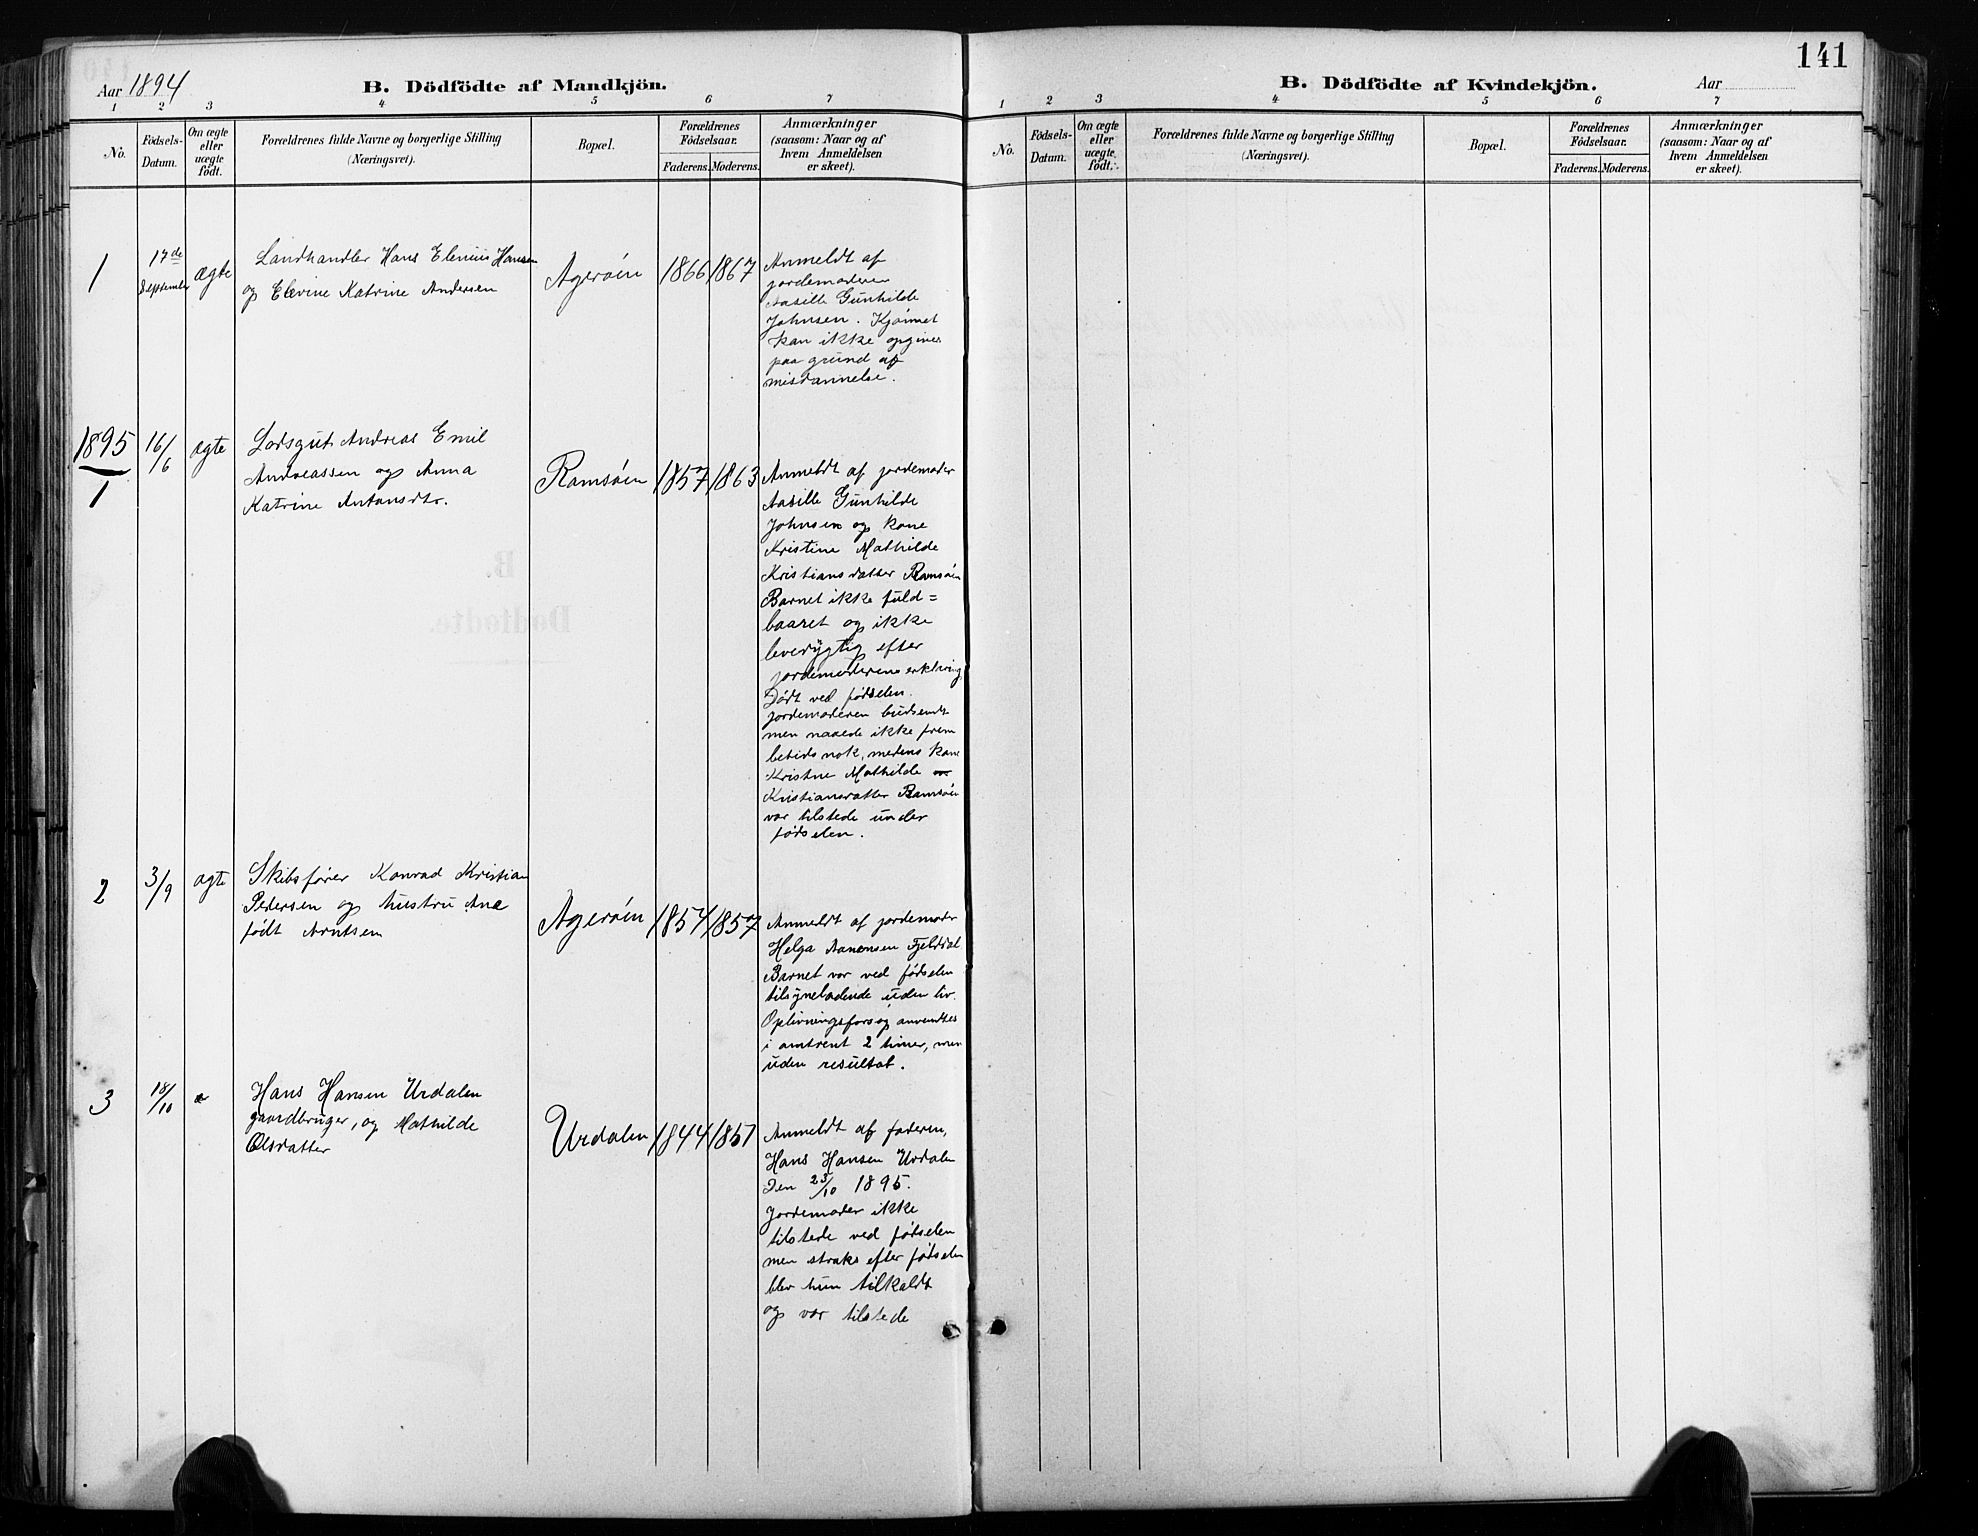 141
Aar 1894
B. Dödfödte af Mandkjön.
1 2 3 4 5 6 7
No.
Födsels-
Datum.
Om ægte
eller
uægte
födt.
Forældrenes fulde Navne og borgerlige Stilling
(Næringsvei).
Bopæl.
Forældrenes
Födselsaar.
Faderens. Moderens.
Anmærkninger
(saasom: Naar og af
hvem Anmeldelsen
er skeet).
1
17de
September
ægte
Landhandler Hans Elenius Hansen
og Elevine Katrine Andersen
Agerøen
1866
1867
Anmeldt af
jordemoderen
Aasille Gunhilde
Johnsen. Kjønnet
kan ikke opgives
paa grund af
misdannelse.
1895
1
16/6
ægte
Lodsgut Andreas Emil
Andreassen og Anna
Katrine Antonsdtr.
Ramsøen
1857
1863
Anmeldt af jordemoder
Aasille Gunhilde
Johnsen og kone
Kristine Mathilde
Kristiansdatter Ramsøen
Barnet ikke fuld=
baaret og ikke
levedygtig efter
jordemoderens erklæring
Født ved fødselen.
Jordemoderen budsendt
men naaede ikke frem
betids nok, medens kone
Kristine Mathilde
Kristiansdatter Ramsøen
var tilstede under
fødselen.
2
3/9
ægte
Skibsfører Konrad Kristian
Pedersen og hustru Ane
født Arntsen
Agerøen
1854
1857
Anmeldt af jordemoder
Helga Aanensen Fjeldal
Barnet var ved fødselen
tilsyneladende uden liv.
Oplivningsforsøg anvendtes
i omtrent 2 timer, men
uden resultat.
3
18/10
Hans Hansen Urdalen
gaardbruger, og Mathilde
Olsdatter
Urdalen
1844
1851
Anmeldt af faderen,
Hans Hansen Urdalen
den 23/10 1895.
Jordemoder ikke
tilstede ved fødselen
men straks efter fødselen
blev hun tilkaldt
og var tilstede
B. Dödfödte af Kvindekjön.
Aar
1 2 3 4 5 6 7
No.
Födsels-
Datum.
Om ægte
eller
uægte
födt.
Forældrenes fulde Navne og borgerlige Stilling
(Næringsvei).
Bopæl.
Forældrenes
Födselsaar.
Faderens. Moderens.
Anmærkninger
(saasom: Naar og af
hvem Anmeldelsen
er skeet).